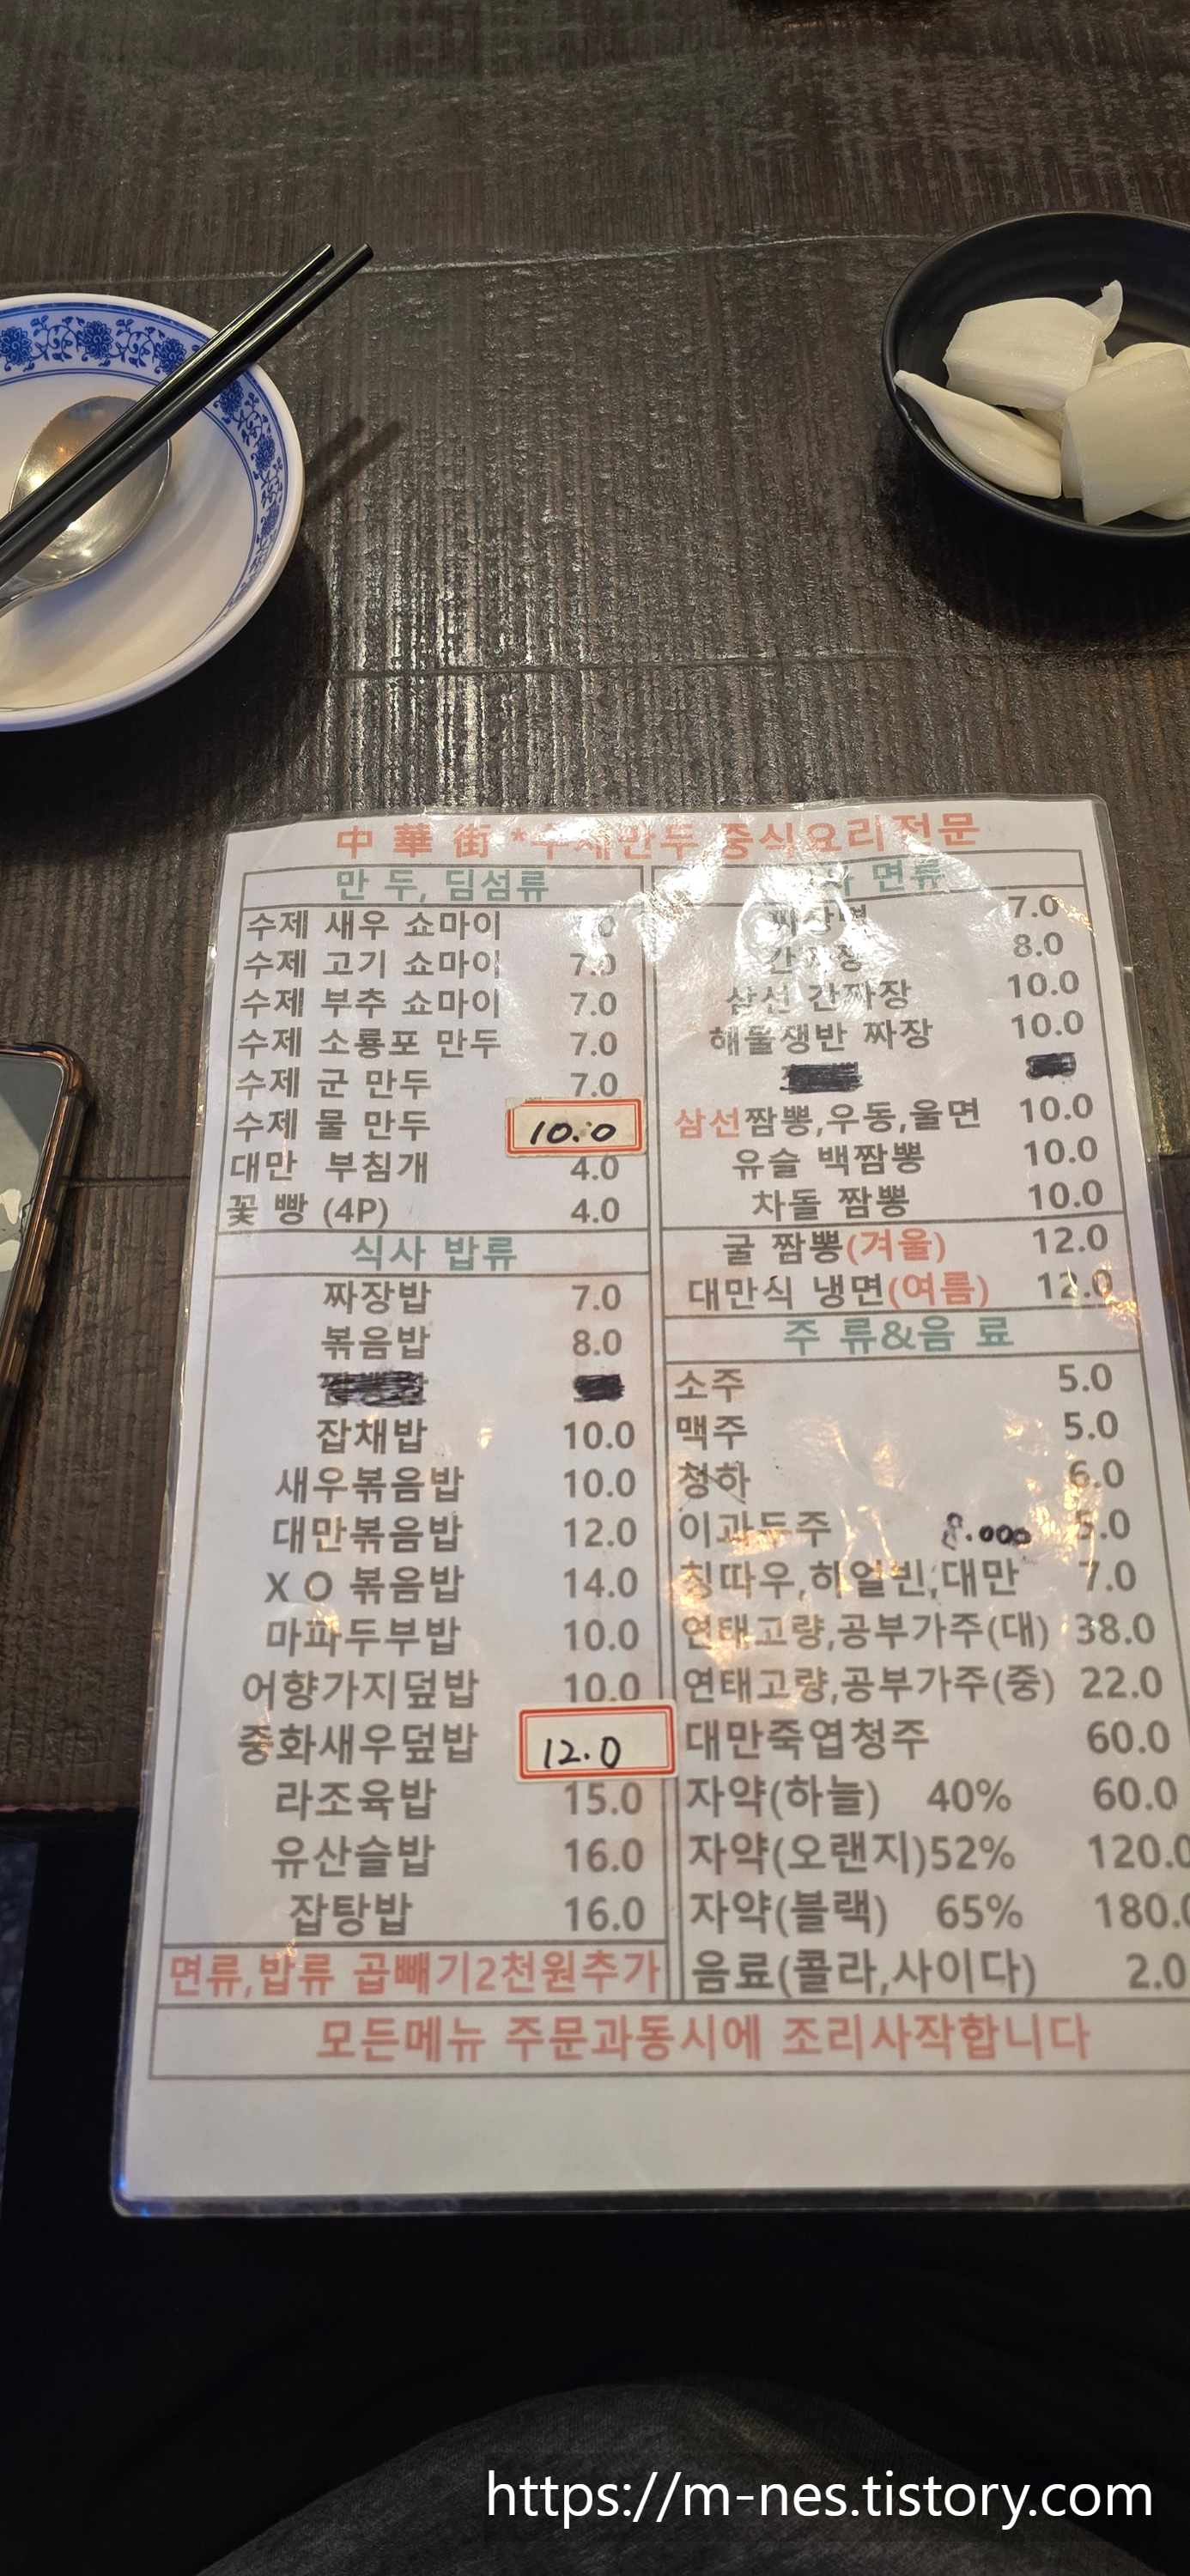 中 華 街 *수제만두 중식요리전문
만 두, 딤섬류
수제 새우 쇼마이
수제 고기 쇼마이 7.0
수제 부추 쇼마이 7.0
수제 소룡포 만두 7.0
수제 군 만두 7.0
수제 물 만두 10.0
대만 부침개 4.0
꽃 빵 (4P) 4.0
식사 밥류
짜장밥 7.0
볶음밥 8.0
잡채밥 10.0
새우볶음밥 10.0
대만볶음밥 12.0
X O 볶음밥 14.0
마파두부밥 10.0
어향가지덮밥 10.0
중화새우덮밥 12.0
라조육밥 15.0
유산슬밥 16.0
잡탕밥 16.0
면류,밥류 곱빼기2천원추가
면류
짜장면 7.0
간짜장 8.0
삼선 간짜장 10.0
해물쟁반 짜장 10.0
삼선짬뽕,우동,울면 10.0
유슬 백짬뽕 10.0
차돌 짬뽕 10.0
굴 짬뽕(겨울) 12.0
대만식 냉면(여름) 12.0
주 류&음 료
소주 5.0
맥주 5.0
청하 6.0
이과두주 8.000 5.0
칭따우,하얼빈,대만 7.0
연태고량,공부가주(대) 38.0
연태고량,공부가주(중) 22.0
대만죽엽청주 60.0
자약(하늘) 40% 60.0
자약(오랜지)52% 120.0
자약(블랙) 65% 180.0
음료(콜라,사이다) 2.0
모든메뉴 주문과동시에 조리시작합니다
https://m-nes.tistory.com